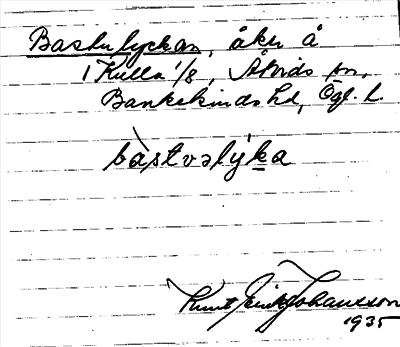 Bastulyckan, åker å
1 Kulla 1/8, Åtvids sn,
Bankekinds hd, Ögl. l.
bàstvəlýka
Knut Erik Johansson
1935